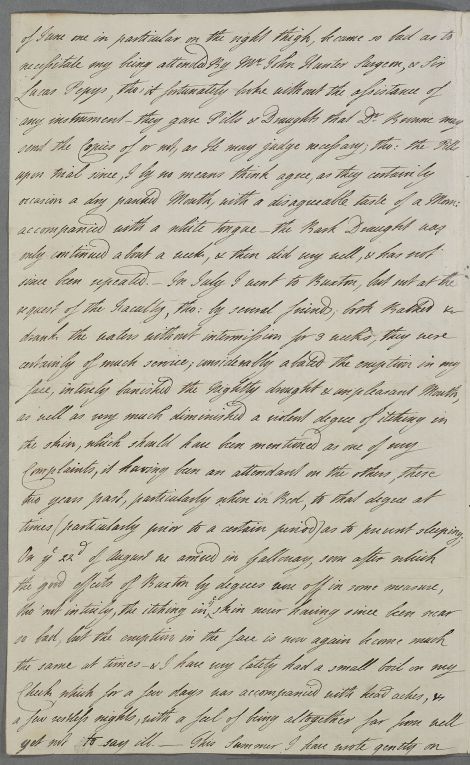 of June one in particular on the right thigh, became so bad as to
necessitate my being attended by Mr. John Hunter Surgeon, & Sir
Lucas Pepys, tho: it fortunately broke without the assistance of
any instrument - they gave Pills & Draughts that Dr. Browne may
send the Copies of or not, as He may judge necessary; tho: the Pills
upon trial since, I by no means think agree, as they certainly
occasion a dry parched Mouth, with a disagreeable taste of a Morn:
accompanied with a white tongue - the Bark Draught was
only continued about a week, & then did very well, & has not
since been repeated. - In July I went to Buxton, but not at the
request of the Faculty, tho: by several friends; both Bathed &
drank the waters without intermission for 3 weeks; they were
certainly of much service; considerably abated the eruption in my
face, intirely banished the Nightly drought & unpleasant Mouth,
as well as very much diminished a violent degree of itching in
the skin, which should have been mentioned as one of my
Complaints, it having been an attendant on the others, these
two years past, particularly when in Bed, to that degree at
times (particularly prior to a certain period) as to prevent sleeping.
On ye 22d of August we arrived in Galloway, soon after which
the good effects of Buxton by degrees wore off in some measure,
tho: not intirely, the itching in ye skin never having since been near
so bad, but the eruption in the face is now again become much
the same at times - & I have very lately had a small boil on my
Cheek which for a few days was accompanied with head aches, &
a few restless nights, with a feel of being altogether far from well
yet not to say ill. - This Summer I have rode gently on